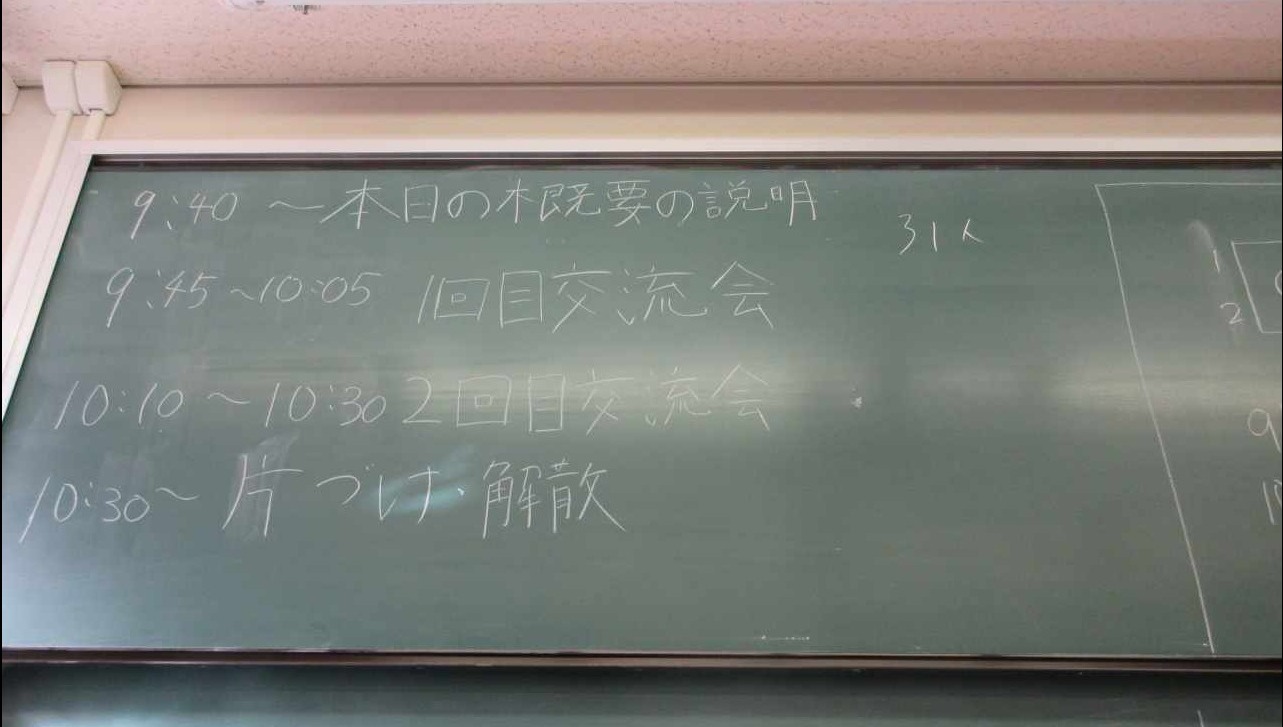 9:40 ～本日の概要の説明
31人
9:45～10:05 1回目交流会
10:10～10:30 2回目交流会
10:30～片づけ・解散
1
2
9